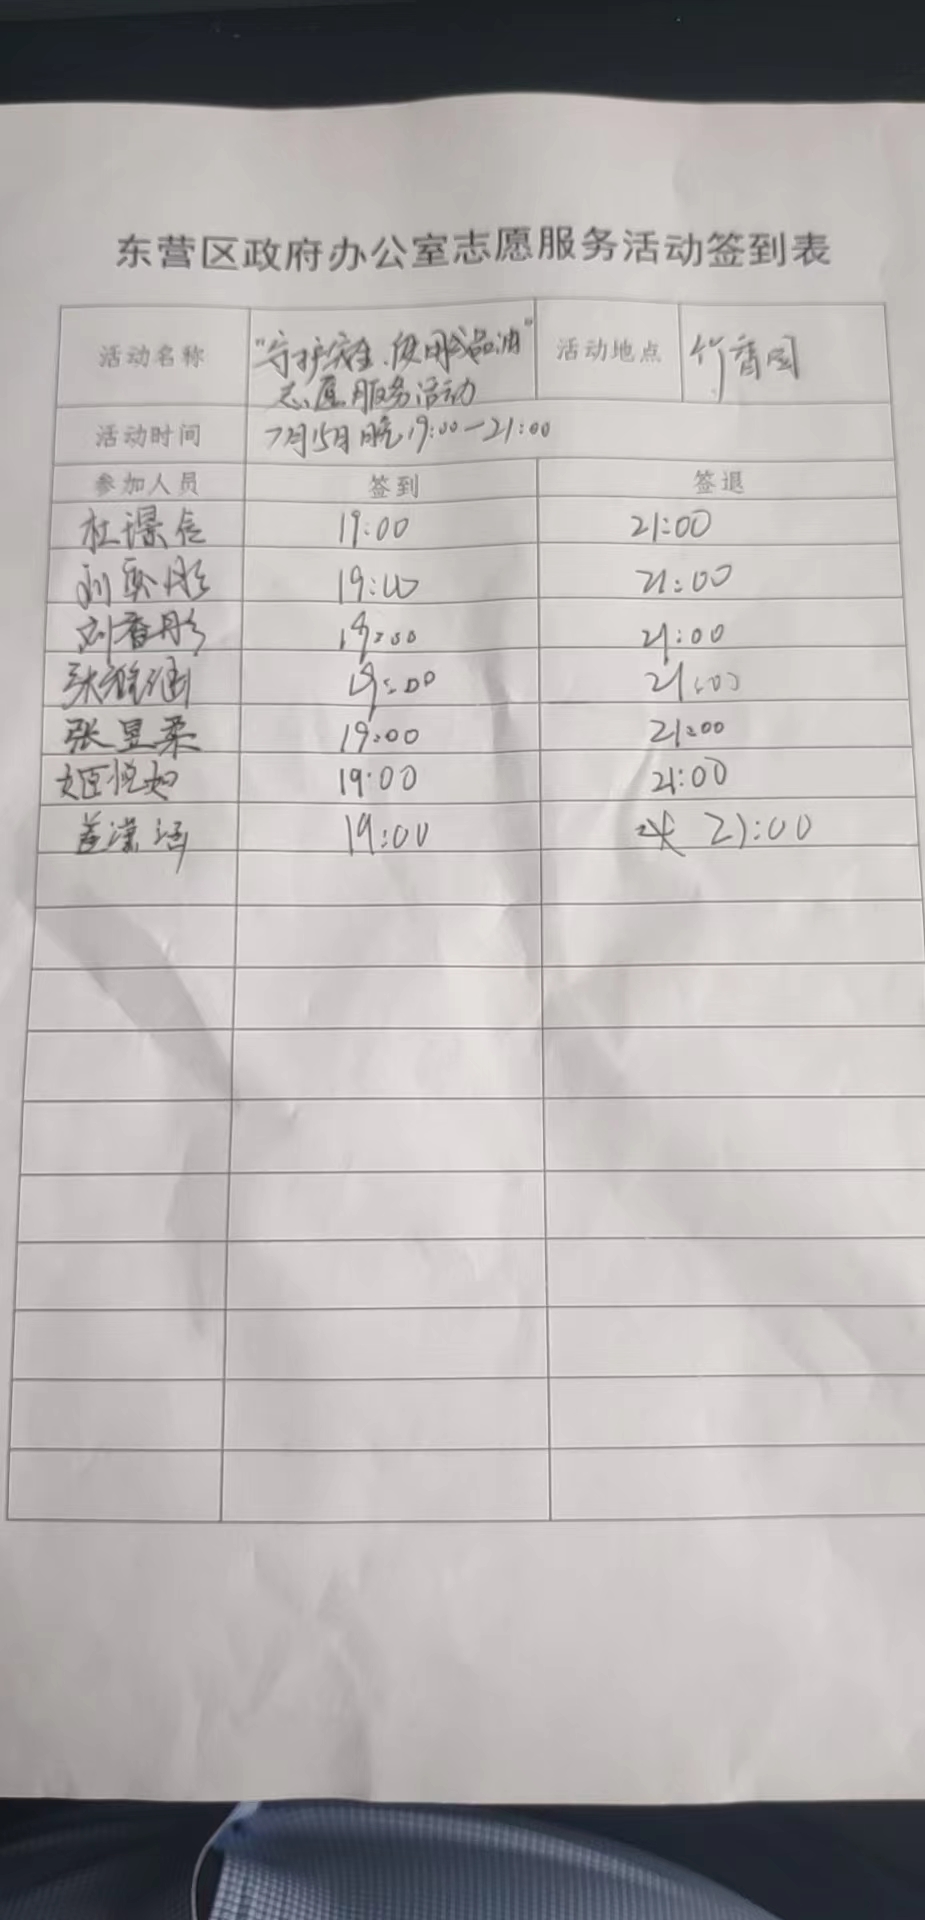 东营区政府办公室志愿服务活动签到表
活动名称 "守护安全、使用成品油" 活动地点 竹香园
志愿服务活动
活动时间 7月15日晚19:00-21:00
参加人员 签到 签退
杜璟信 19:00 21:00
刘 19:00 21:00
刘香彤 19:00 21:00
张雅涵 19:00 21:00
张昱柔 19:00 21:00
姬悦如 19:00 21:00
19:00 21:00